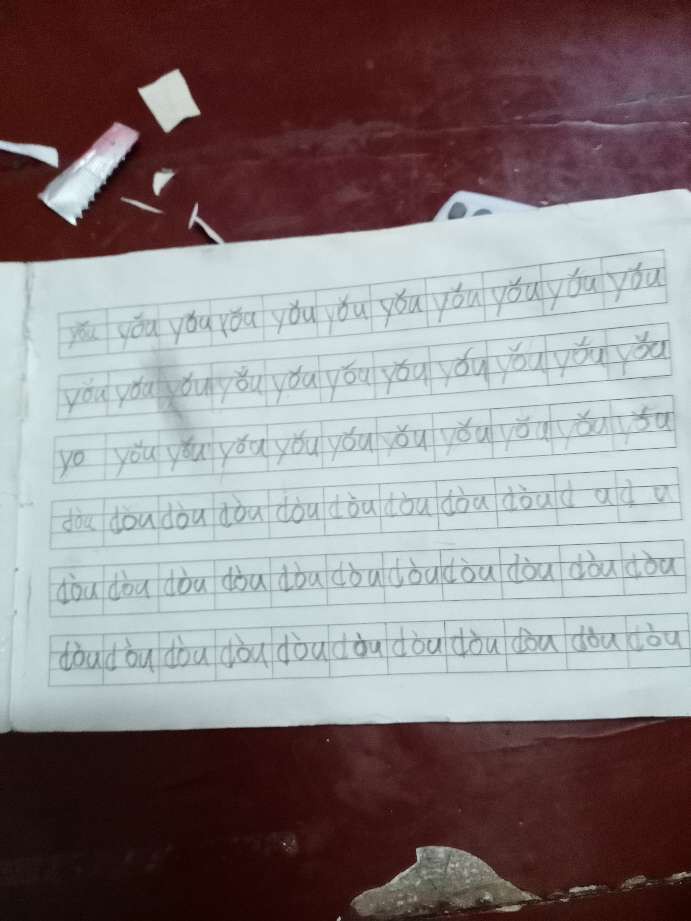 yǒu yǒu yǒu yǒu yǒu yǒu yǒu yǒu yǒu yǒu yǒu
yǒu yǒu yǒu yǒu yǒu yǒu yǒu yǒu yǒu yǒu yǒu
yo yǒu yǒu yǒu yǒu yǒu yǒu yǒu yǒu yǒu yǒu
dòu dòu dòu dòu dòu dòu dòu dòu dòu d u d u
dòu dòu dòu dòu dòu dòu dòu dòu dòu dòu dòu
dòu dòu dòu dòu dòu dòu dòu dòu dòu dòu dòu